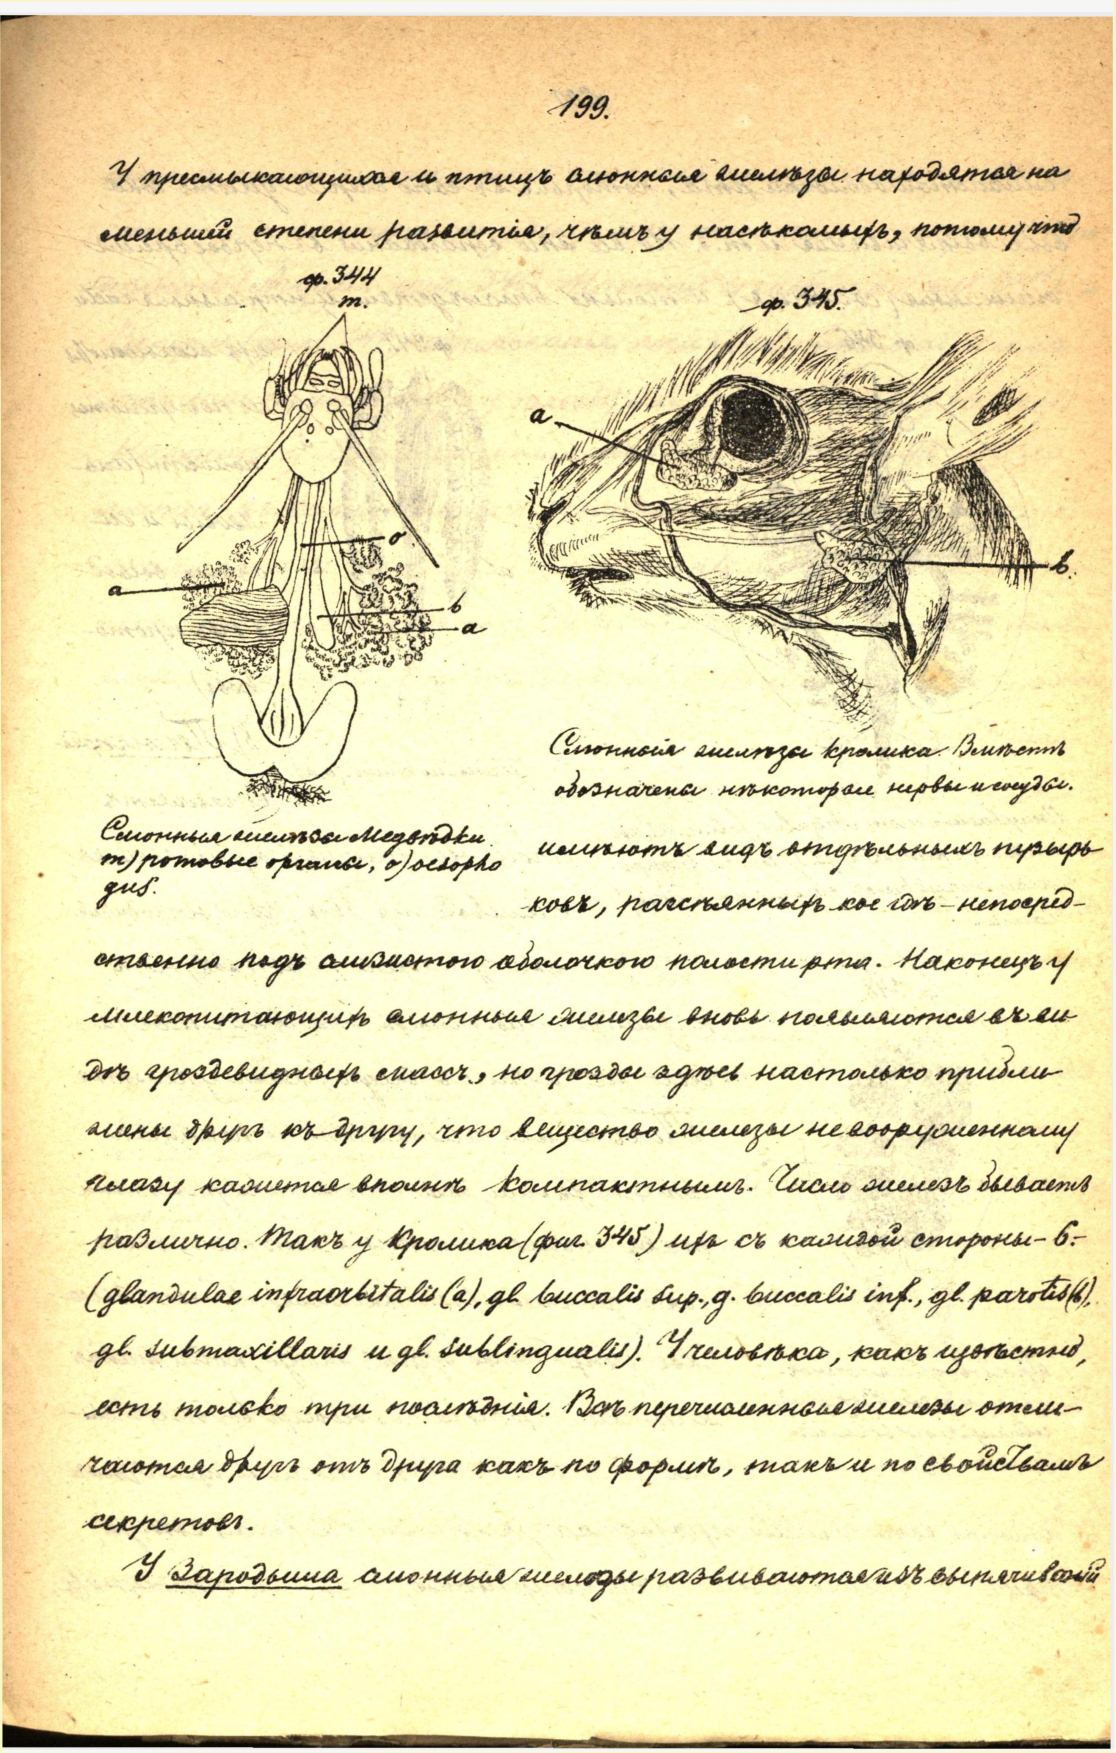 199.
У пресмыкающихся и птицъ слюнныя железы находятся на
меньшей степени развитія, чѣмъ у насѣкомыхъ, потому что
ф. 344
m.
ф. 345.
a
o
a
b
a
b.
Слюнныя железы кролика. Вмѣстѣ
обозначены нѣкоторые нервы и сосуды.
Слюнныя железы Медвѣдки
m) ротовые органы, o) oesopha
gus.
имѣютъ видъ отдѣльныхъ пузырь
ковъ, разсѣянныхъ кое гдѣ – непосред-
ственно подъ слизистою оболочкою полости рта. Наконецъ у
млекопитающихъ слюнныя железы вновь появляются въ ви
дѣ гроздевидныхъ массъ, но грозды здѣсь настолько прибли
жены другъ къ другу, что вещество железы невооруженному
глазу кажется вполнѣ компактнымъ. Число железъ бываетъ
различно. Такъ у Кролика (фиг. 345) ихъ съ каждой стороны – 6:-
(glandulae infraorbitalis (a), gl. buccalis sup., g. buccalis inf., gl. parotis (b),
gl. submaxillaris и gl. sublingualis). У человѣка, какъ извѣстно,
есть только три послѣднія. Всѣ перечисленныя железы отли-
чаются другъ отъ друга какъ по формѣ, такъ и по свойствамъ
секретовъ.
У Зародыша слюнныя железы развиваются изъ выпячиваній